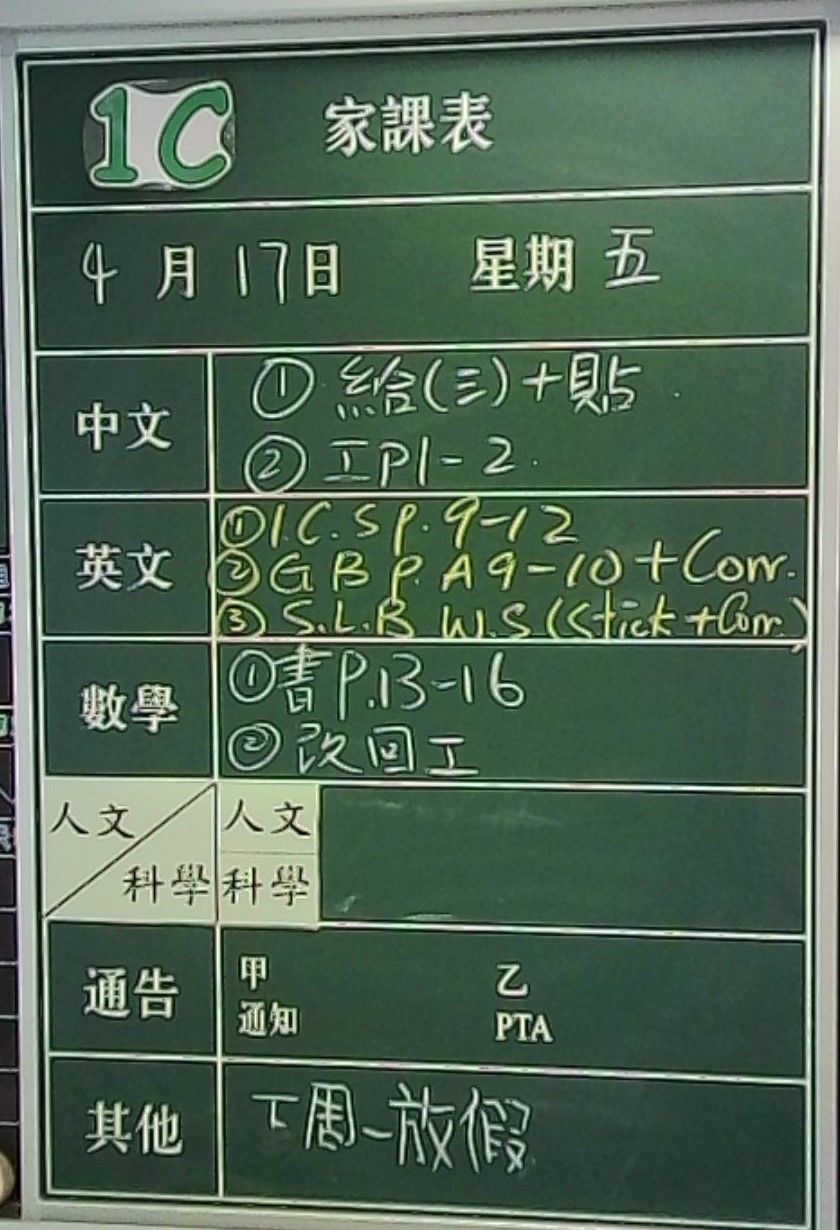 1C 家課表
4月17日 星期五
中文
① 給(三)+貼
② 工P1-2
英文
① 1C.S P.9-12
② G B P.A9-10+Corr.
③ S.L.B W.S(Stick+Corr.)
數學
① 書P.13-16
② 改回工
人文 人文
科學 科學
通告
甲 乙
通知 PTA
其他
下周一放假